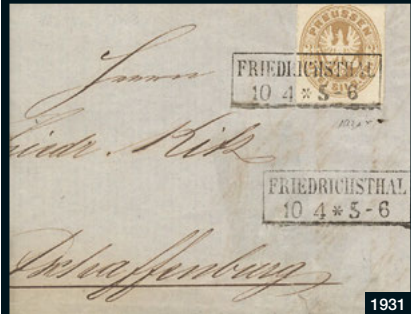 PREUSSEN
FRIEDRICHSTHAL
10 4 * 5-6
Herrn
FRIEDRICHSTHAL
10 4 * 5-6
Aschaffenburg
1931